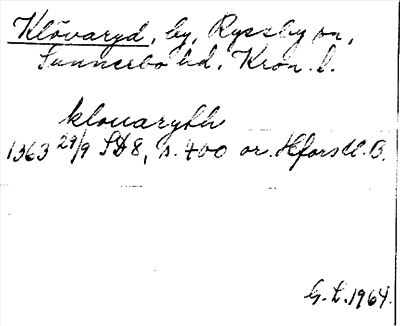 Klövaryd, by, Ryssby sn,
Sunnerbo hd. Kron. l.
klouarydh
1363 29/9 SD 8, s. 400 or. Hfors U. B.
G. L. 1964.